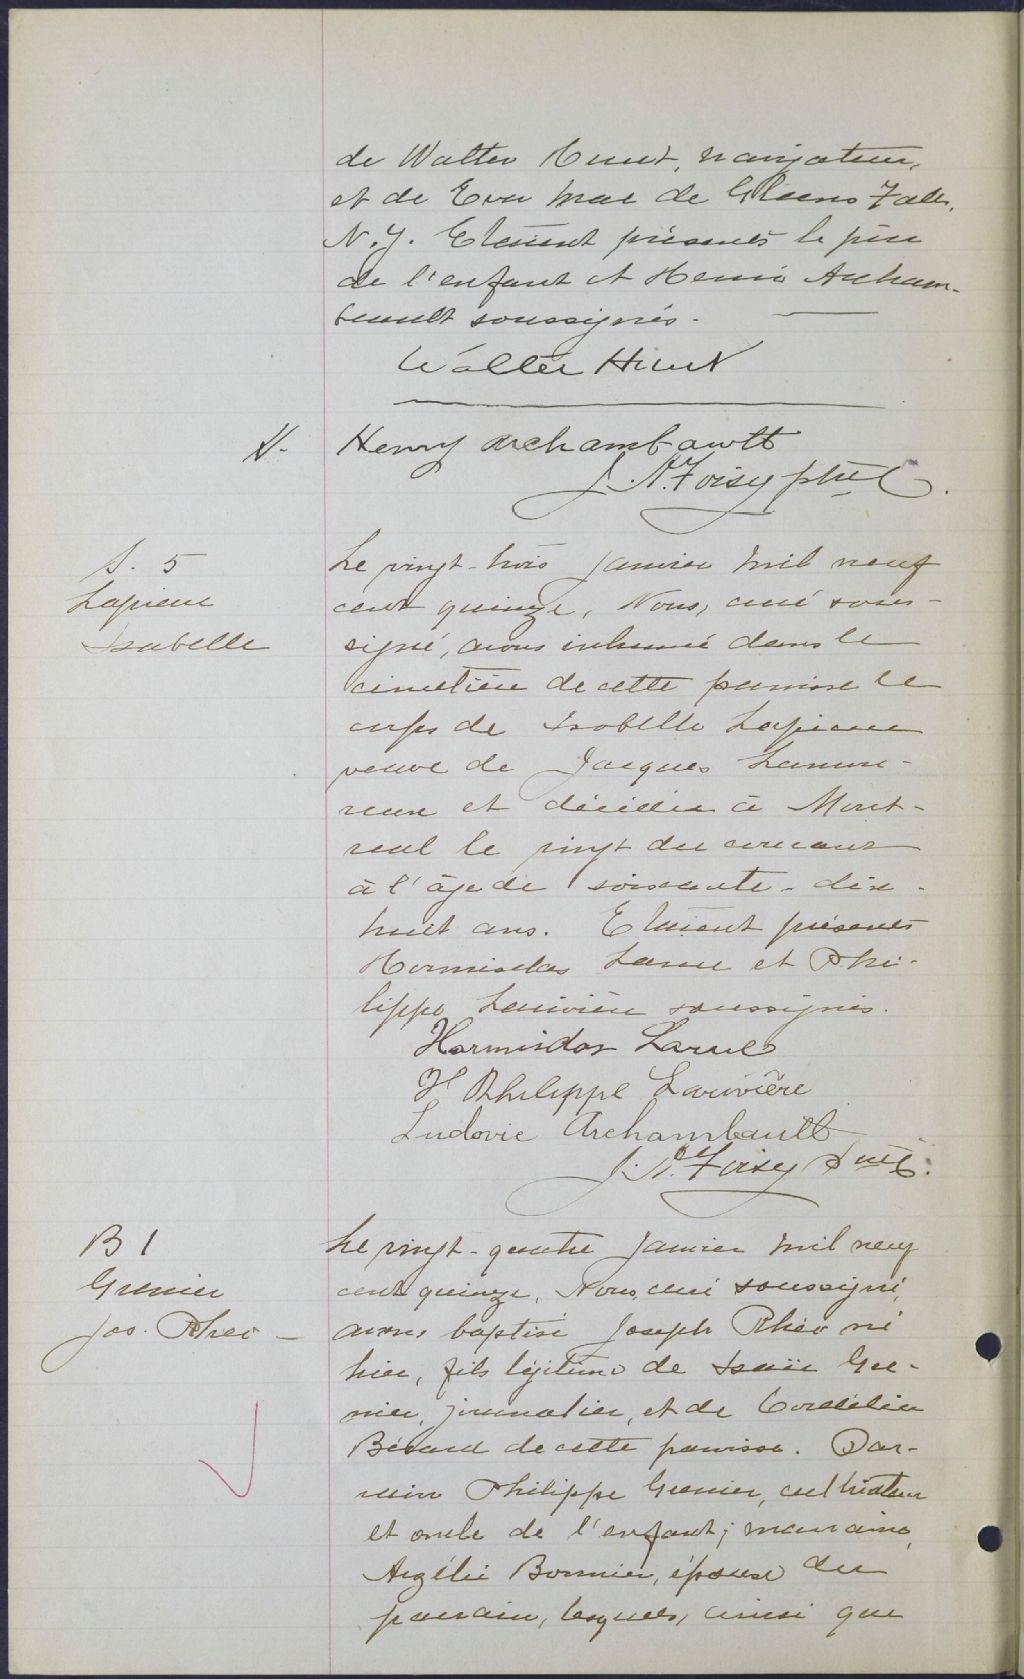 de Walter Hunt, navigateur,
et de Eva Mae de Gleens Falls,
N.Y. Etaient présents le père
de l'enfant et Henri Archam-
beault soussignés.
Walter Hunt
H. Henry archambault
J. N. Foisy ptre C.
S. 5
Lapierre
Isabelle
Le vingt-trois janvier mil neuf
cent quinze, Nous, curé sous-
signé, avons inhumé dans le
cimetière de cette paroisse le
corps de Isabelle Lapierre
veuve de Jacques Lamou-
reux et décédée à Mont-
real le vingt du courant
à l'âge de soixante-dix-
huit ans. Etaient présents
Hormisdas Larue et Phi-
lippe Larivière soussignés.
Hormisdas Larue
Philippe Larivière
Ludovic Archambault
J. N. Foisy Ptre C.
B 1
Grenier
Jos. Rhéo
Le vingt-quatre janvier mil neuf
cent quinze, Nous, curé soussigné,
avons baptisé Joseph Rhéo né
hier, fils légitime de Isaïe Gre-
nier, journalier, et de Cordélia
Bérard de cette paroisse. Par-
rain Philippe Grenier, cultivateur
et oncle de l'enfant; marraine,
Azélie Bonnier, épouse du
parrain, lesquels, ainsi que